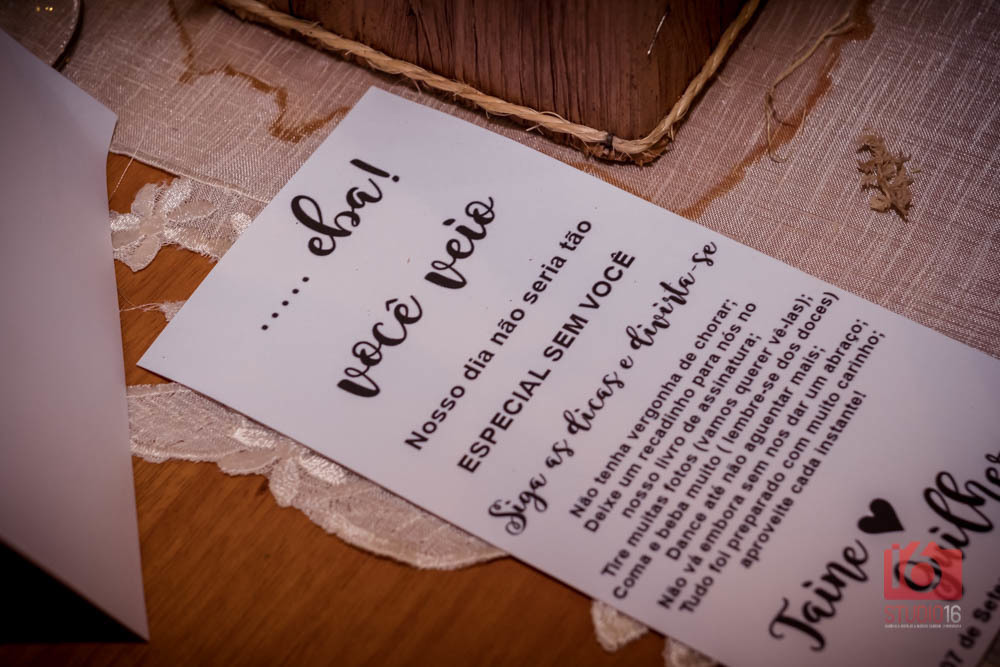 ..... eba!
você veio
Nosso dia não seria tão
ESPECIAL SEM VOCÊ
Siga as dicas e divirta-se
Não tenha vergonha de chorar;
Deixe um recadinho para nós no
nosso livro de assinatura;
Tire muitas fotos (vamos querer vê-las);
coma e beba muito ( lembre-se dos doces)
Dance até não aguentar mais;
Não vá embora sem nos dar um abraço;
Tudo foi preparado com muito carinho;
aproveite cada instante!
Taine
de Sete
STUDIO16